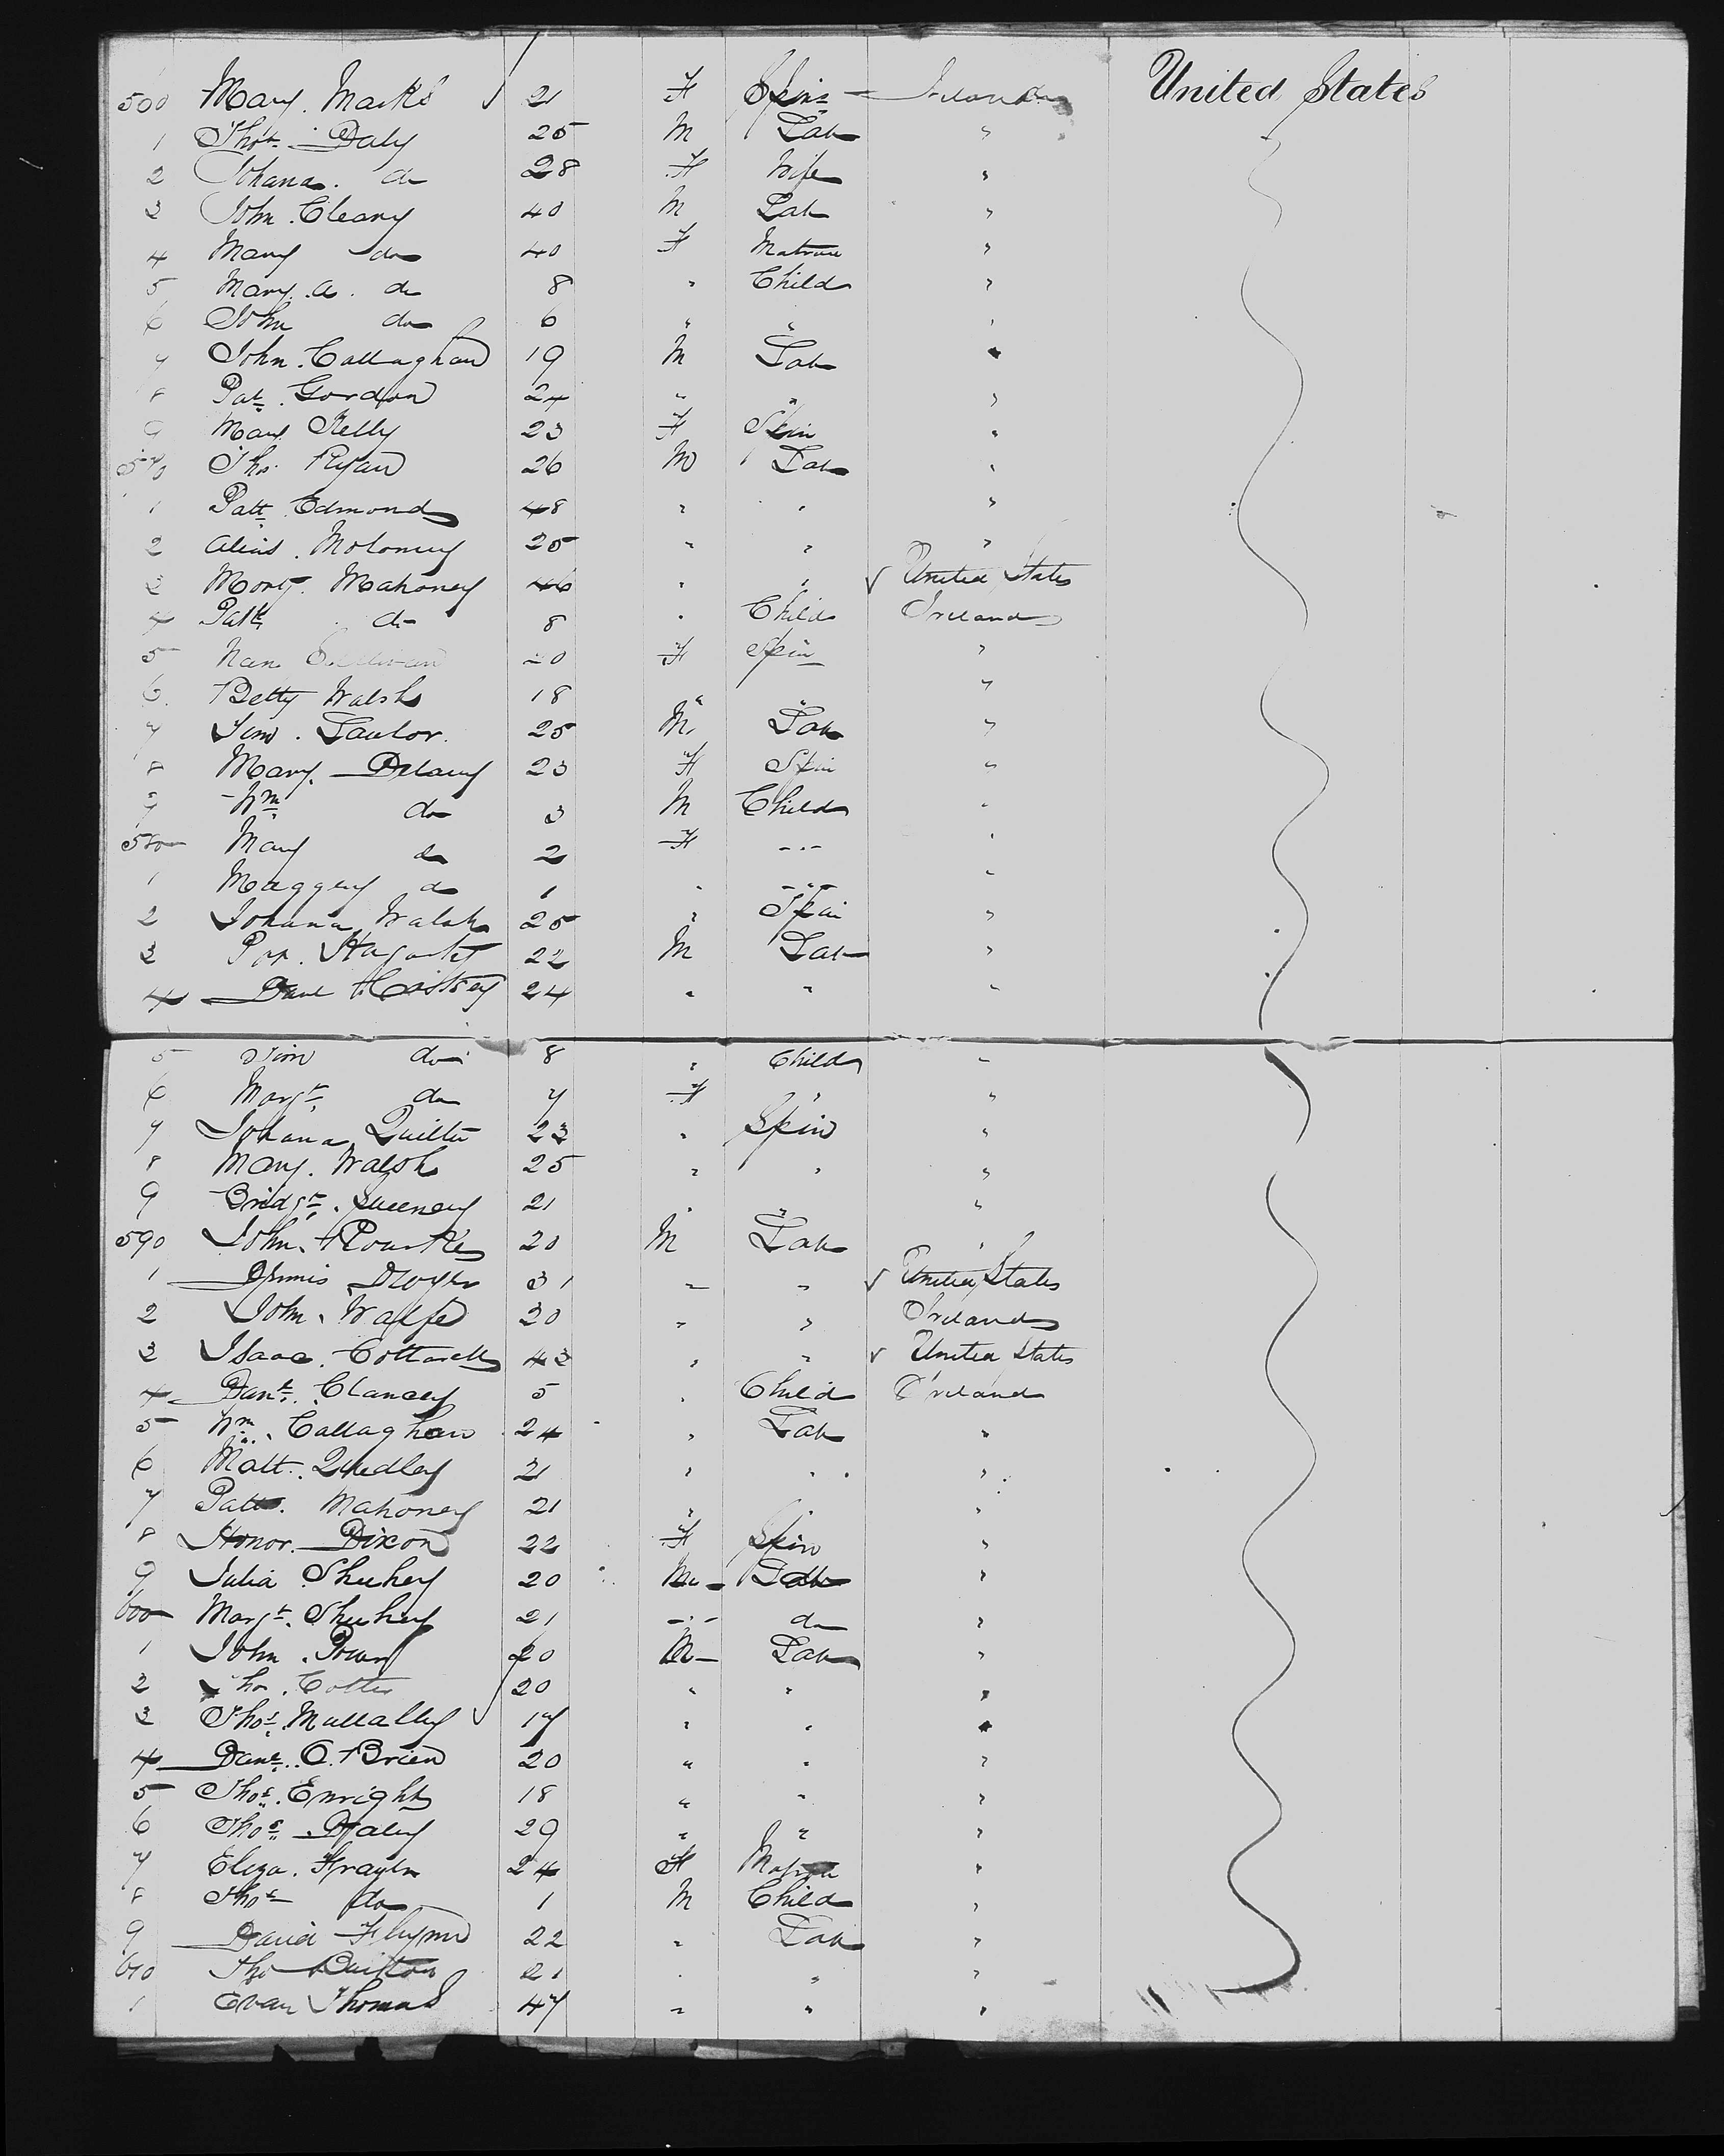 500 Mary. Marks 21 F Spin Ireland United States
1 Thos. Daly 25 M Lab "
2 Johana. do 28 F Wife "
3 John. Cleary 40 M Lab "
4 Mary do 40 F Matron "
5 Mary. A. do 8 " Child "
6 John do 6 " " "
7 John. Callaghan 19 M Lab "
8 Pat. Gordon 24 " " "
9 Mary Kelly 23 F Spin "
570 Tho. Ryan 26 M Lab "
1 Patt Edmonds 48 " " "
2 Molomey 25 " " "
3 Mort. Mahoney 46 " " √ United States
4 Patk do 8 " Child Ireland
5 Nan Sullivan 20 F Spin "
6 Betty Walsh 18 " " "
7 Lawlor. 25 M Lab "
8 Mary. Delany 23 F Spin "
9 Wm do 3 M Child "
580 Mary do 2 F " "
1 Maggey do 1 " " "
2 Johana Walsh 25 " Spin "
3 22 M Lab "
4 24 " " "
5 Tim do 8 " Child "
6 Margt do 7 F " "
7 Johana Quilter 23 " Spin "
8 Mary. Walsh 25 " " "
9 Bridgt. Sweeney 21 " " "
590 John. Rourke 20 M Lab "
1 Dennis Dwyer 31 " " √ United States
2 John. 20 " " Ireland
3 Isaac. Cottarell 43 " " √ United States
4 Danl. Clancey 5 " Child Ireland
5 Wm. Callaghan 24 " Lab "
6 Matt. 21 " " "
7 Patt. Mahoney 21 " " "
8 Honor. Dixon 22 F Spin "
9 Julia Sheehey 20 M Lab "
600 Margt. Sheehey 21 " do "
1 John. 20 M Lab "
2 Tho. Cotter 20 " " "
3 Thos. Mullally 17 " " "
4 Danl. O. Brien 20 " " "
5 Thos. Enright 18 " " "
6 Thos. Daley 29 " " "
7 Eliza. 24 F Matron "
8 Thos do 1 M Child "
9 David Flynn 22 " Lab "
610 Tho 21 " " "
1 Evan Thomas 47 " " "